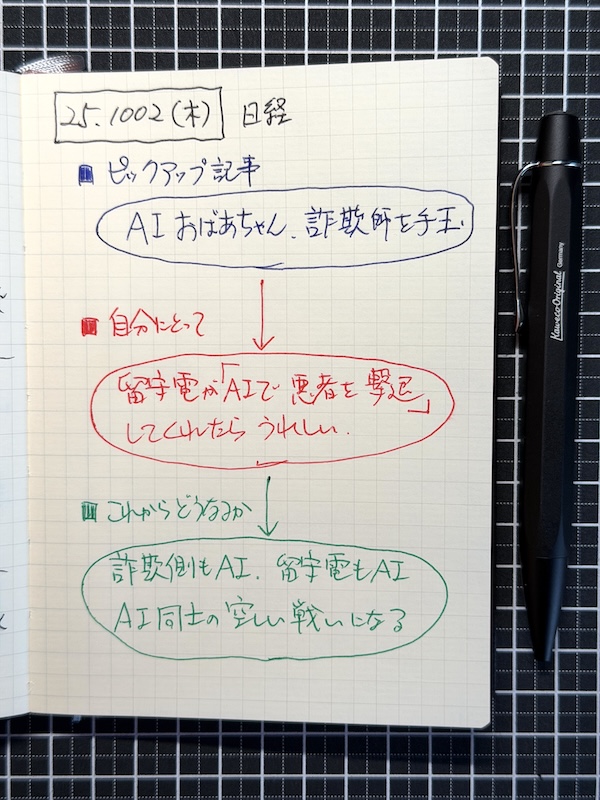 25.1002(木) 日経
■ピックアップ記事
AIおばあちゃん、詐欺師を手玉
■自分にとって
留守電が「AIで悪者を撃退」
してくれたらうれしい.
■これからどうなるか
詐欺側もAI、留守電もAI
AI同士の空しい戦いになる
Kaweco-Original Germany